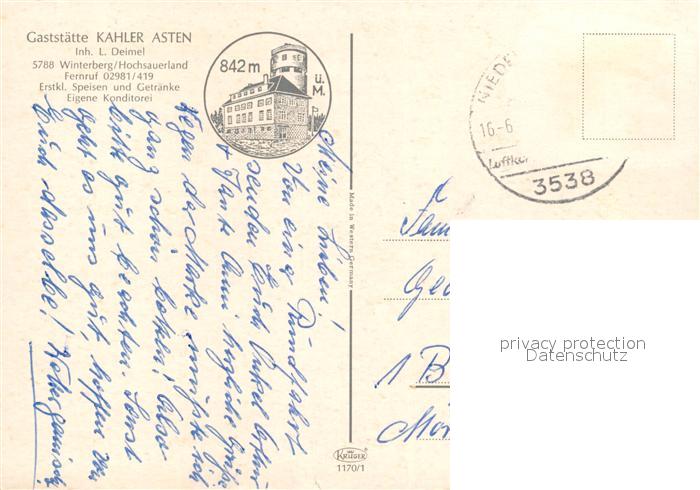 Gaststätte KAHLER ASTEN
Inh. L. Deimel
5788 Winterberg/Hochsauerland
Fernruf 02981/419
Erstkl. Speisen und Getränke
Eigene Konditorei
842 m
ü.
M.
Meine Lieben!
Von einer Rundfahrt
senden Euch Onkel
+ Tante Anni herzliche Grüße
Wegen der Marke mußte ich
ganz schön
bitte gut Sonst
geht es uns gut, hoffen von
Euch dasselbe!
Made in Western Germany
KRÜGER
1170/1
NIEDE
16.-6
Luftkur
3538
Fam
1 B
privacy protection
Datenschutz